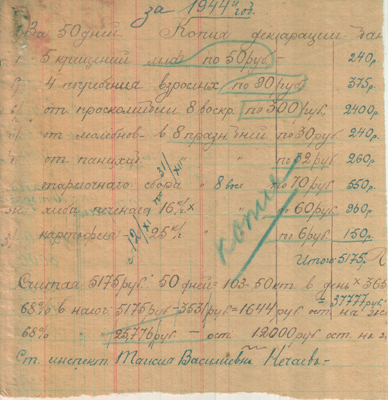 за 1944й год.
За 50 дней Копия декларации дан
5 крищений по 50 руб - 240р.
4 погребения взросных по 90 руб 375р.
от проскомидии 8 воскр. по 300 руб. 2400р
от молебнов в 8 празн дней по 30 руб 240р.
от панихид " по 32 руб 260р
тарелочного сбора " 8 вос по 70 руб. 550р.
хлеба печенаго 16 кг x по 60 руб. 960р.
картофеля - 25 кг по 6 руб. 150р.
Итого 5175р.
копия
Считая 5175 руб: 50 дней = 103-50 коп в день x 365
= 37777 руб
68% в налог. 5175 руб - 3531 руб = 1644 руб ост. на
68% " 25776 руб - ост. 12000 руб ост. на
Ст. инспект. Таисия Васильевна Нечаева -